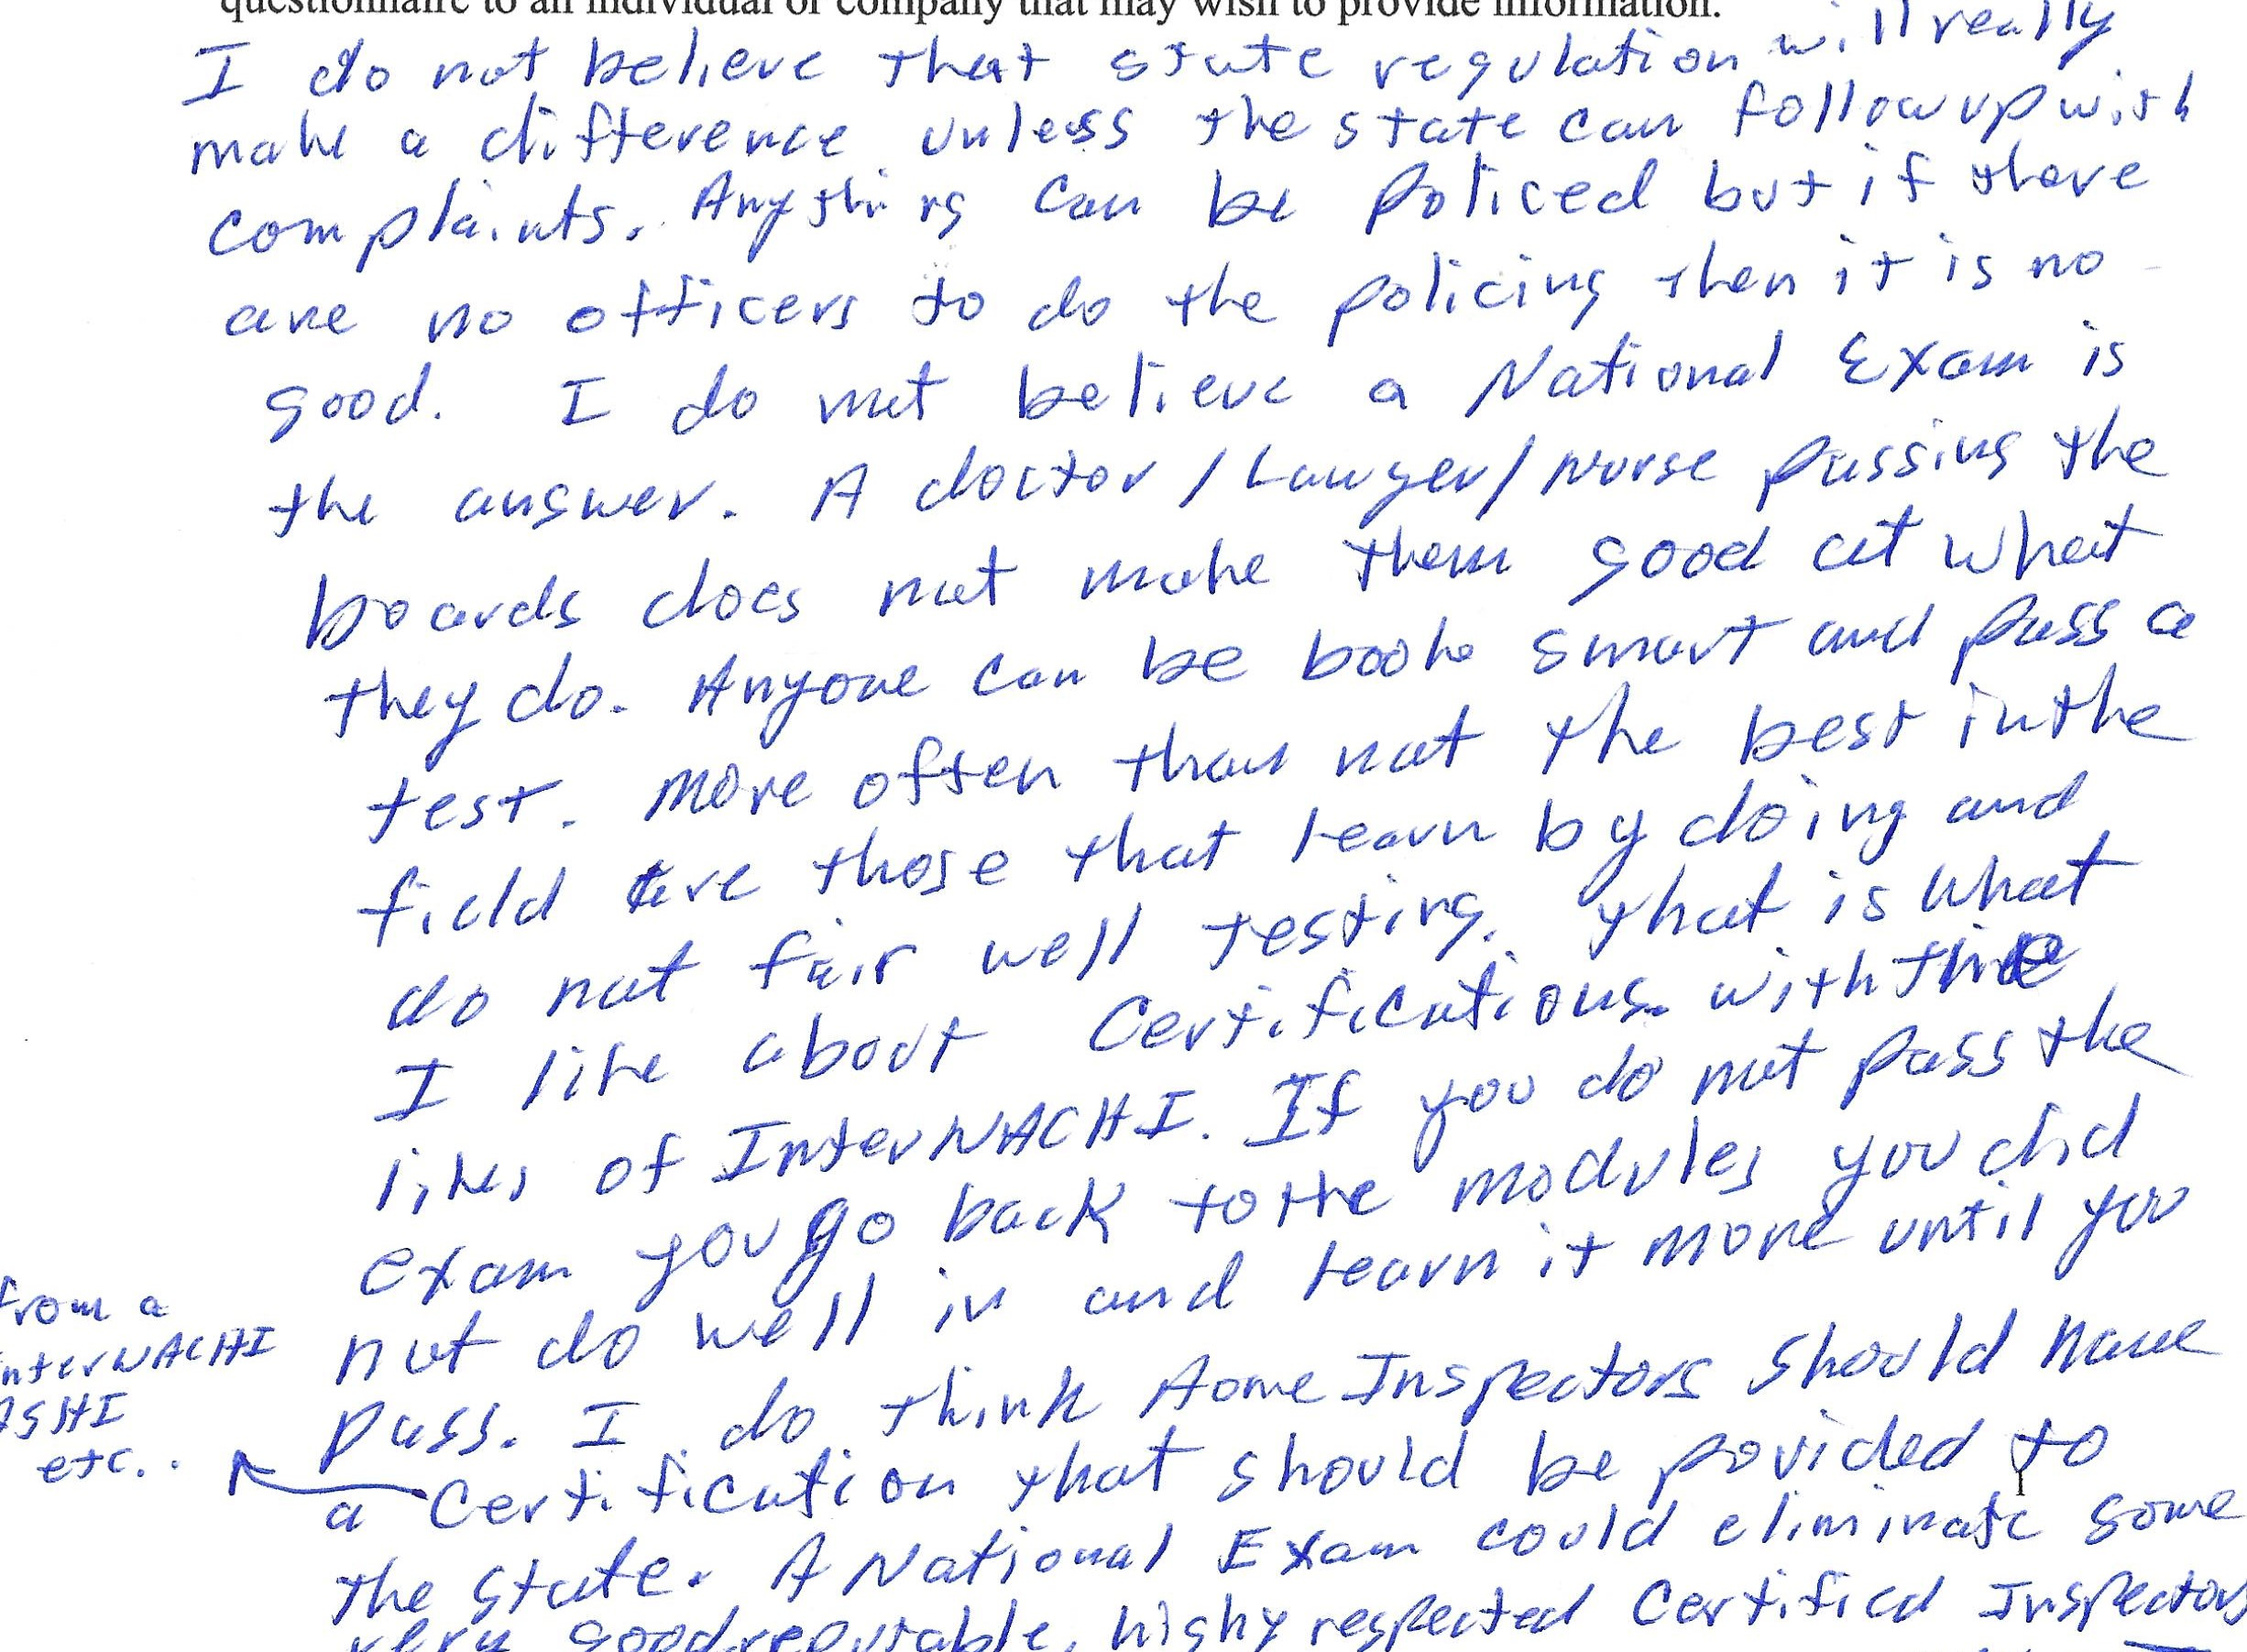 questionnaire to an individual or company that may wish to provide information.
I do not believe that state regulation will really
make a difference unless the state can follow up with
complaints. Anything can be policed but if there
are no officers to do the policing then it is no
good. I do not believe a National Exam is
the answer. A doctor / Lawyer / Nurse passing the
boards does not make them good at what
they do. Anyone can be book smart and pass a
test. More often than not the best in the
field are those that learn by doing and
do not fair well testing. That is what
I like about Certifications with the
likes of InterNACHI. If you do not pass the
exam you go back to the modules you did
not do well in and learn it more until you
pass. I do think Home Inspectors should have
a Certification that should be povided to
from a
InterNACHI
ASHI
etc..
the state. A National Exam could eliminate some
very good, reputable, highy respected Certified Inspectors